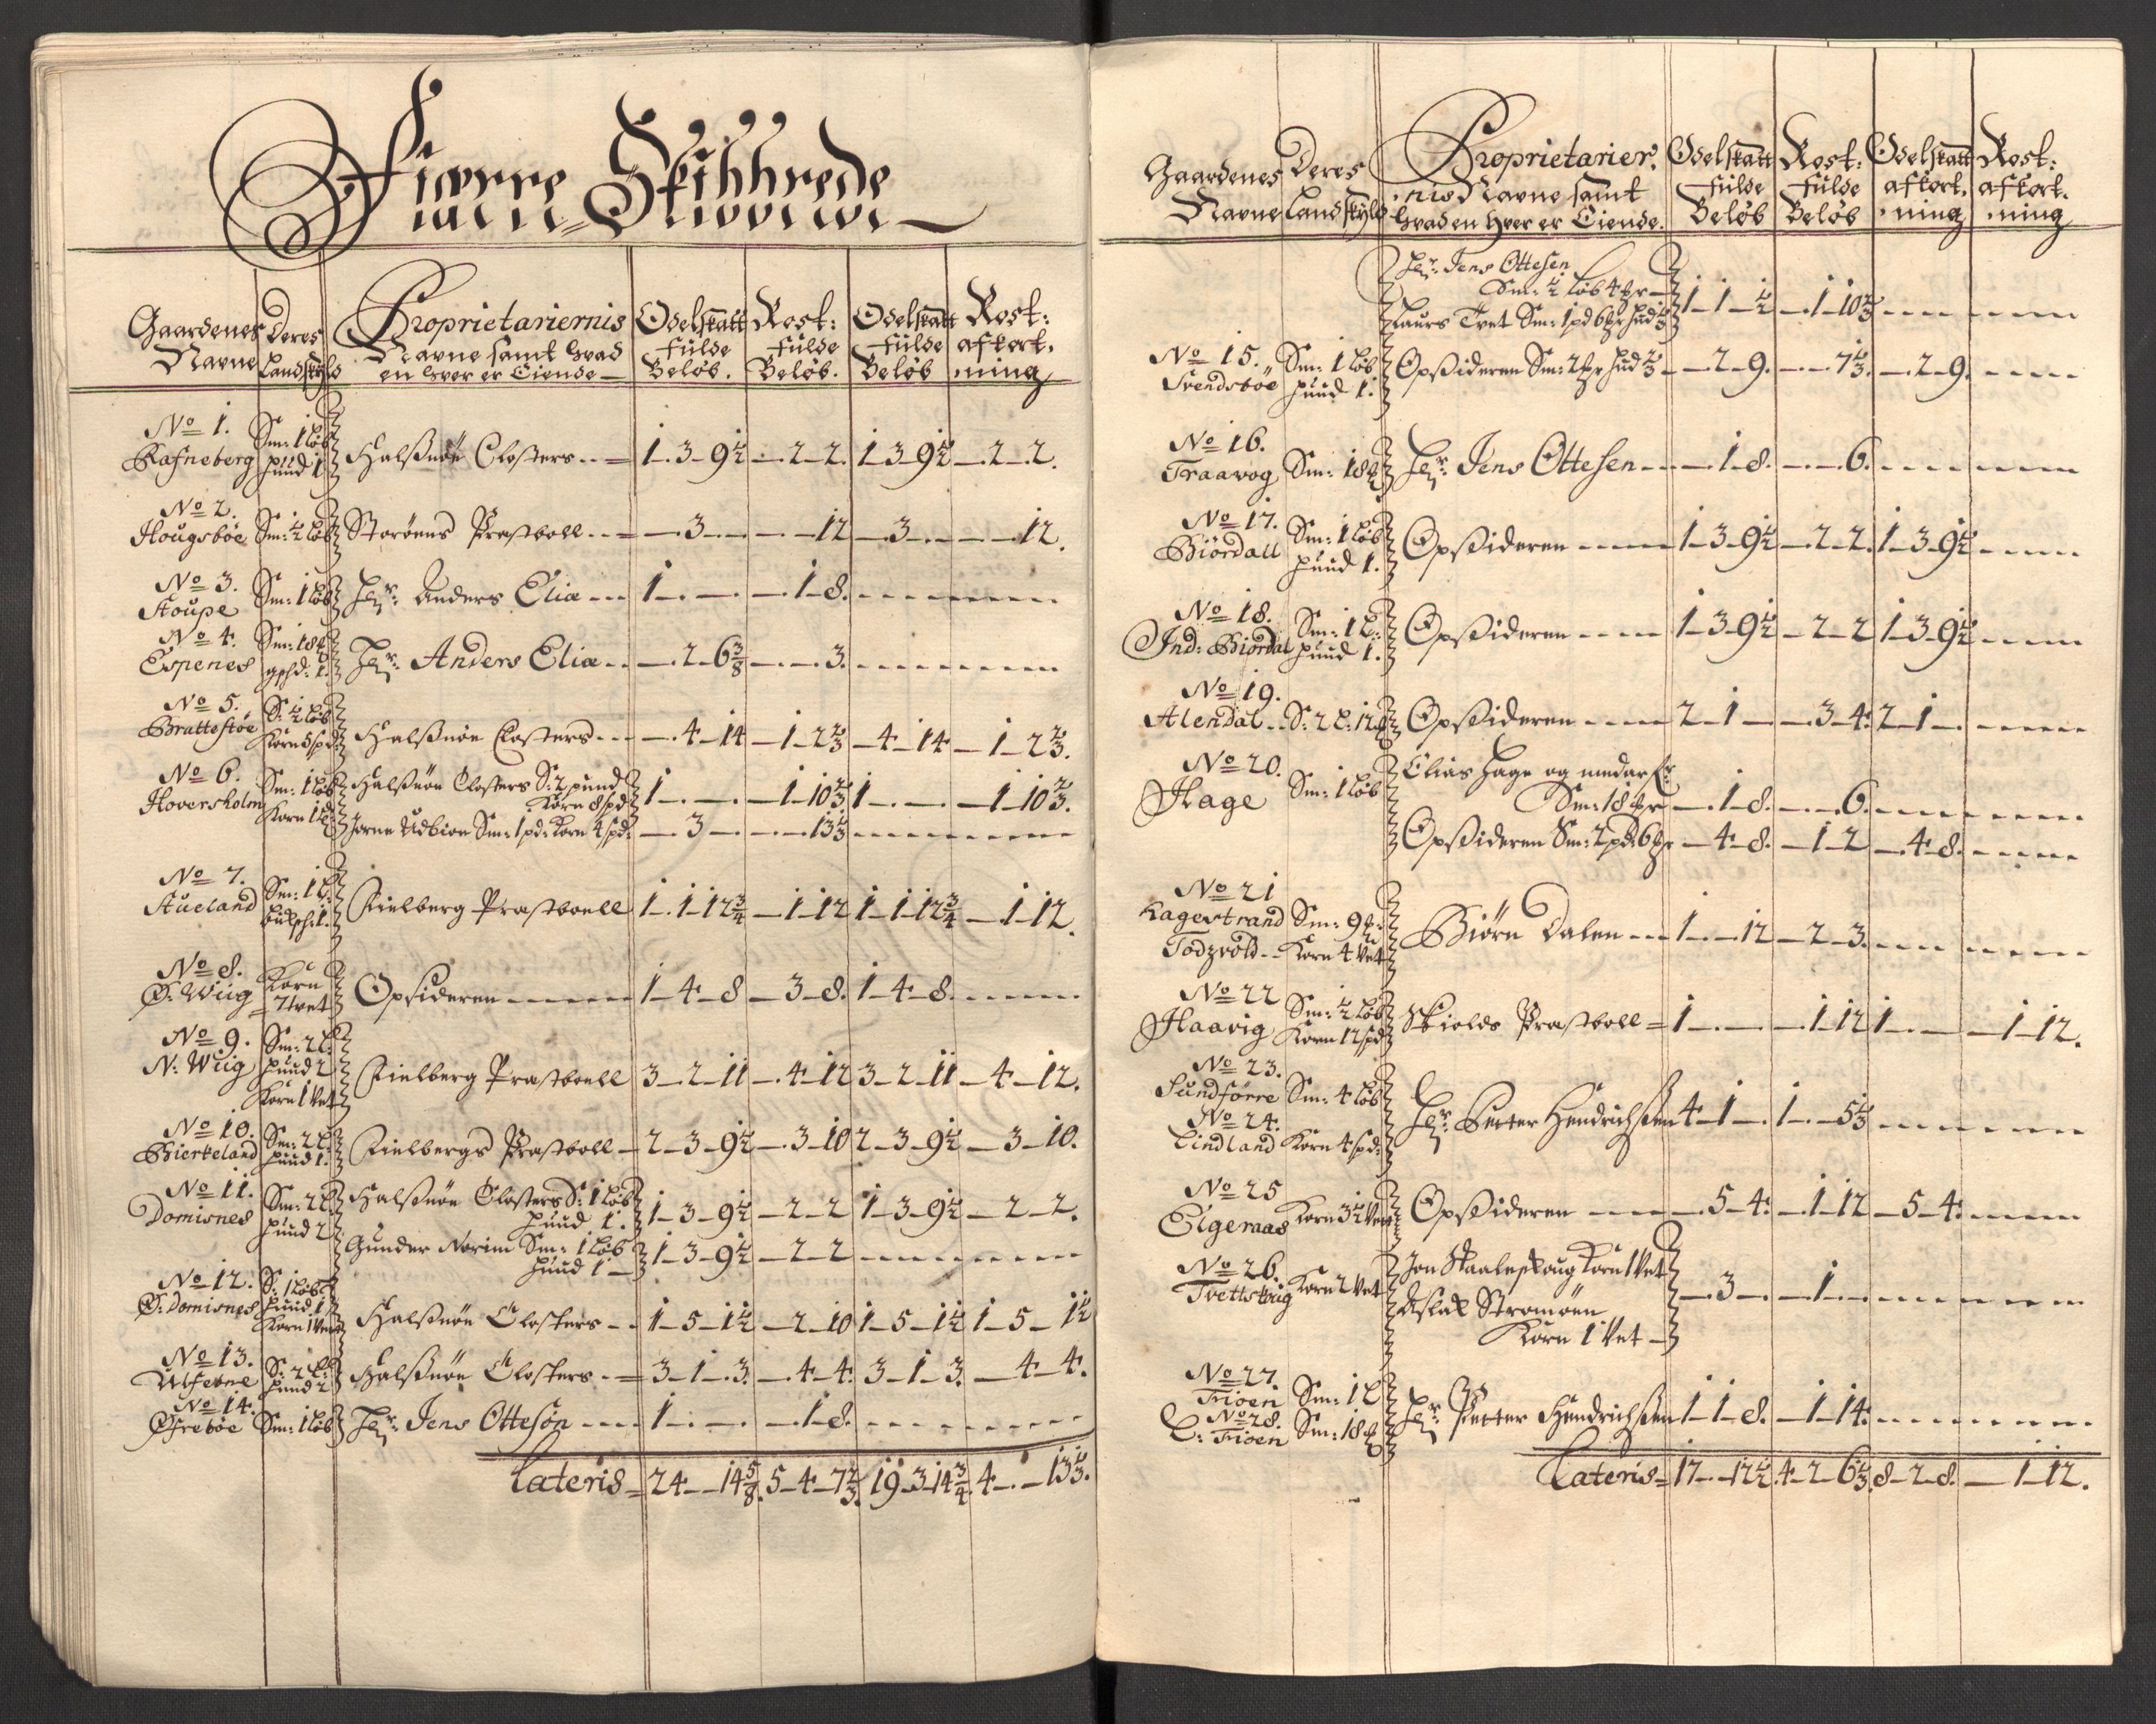 Fiærre Skibbrede
Gaardenes Navne
Deres Landskyld
Proprietariernis Navne samt hvad en hver er Eiende
Odelskatt fulde Beløb.
Rost: fulde Beløb.
Odelskatt fulde Beløb
Rost: afkort. ning
No 1. Rafneberg Sm: 1 løb huud 1 Halsnöe Closters 1-3-9½ -2-2. 1-3-9½ -2-2.
No 2. Hougsbøe Sm: ½ løb Storøens Præstboll -3- -12 -3- -12.
No 3. Stoupe Sm: 1 løb Hr: Anders Eliæ 1-.- -1-8.
No 4. Espenes Sm: 18 gshd: 1. Hr: Anders Eliæ -2-6 3/8 -3.
No 5. Brattestøe S: ½ løb Korn 5 spd Halsnöe Closters -4-14 -1-2⅔ -4-14 -1-2⅔.
No 6. Hoversholm Sm: 1 løb Korn 1 Halsnöe Closters S: 2 pund Korn 8 spd 1-.- -1-10⅔ 1-.- -1-10⅔.
Jorne Udbioe Sm: 1 pd: Korn 4 spd: -3- -13⅓
No 7. Aueland Sm: 1 L: Fielberg Præstboell 1-1-12¾ -1-12 1-1-12¾ -1-12.
No 8. Ø: Wiig Korn 7 vet Opsideren 1-4-8 -3-8. 1-4-8.
No 9. N: Wiig Sm: 2 L: huud 2 Korn 1 Vet Fielberg Præstboell 3-2-11 -4-12 3-2-11 -4-12.
No 10. Bierkeland Sm: 2 L huud 1. Fielbergs Præstboll 2-3-9½ -3-10 2-3-9½ -3-10.
No 11. Domisnes Sm: 2 L huud 2 Halsnöe Closters S: 1 løb huud 1. 1-3-9½ -2-2 1-3-9½ -2-2.
Gunder Norim Sm: 1 løb huud 1 1-3-9½ -2-2
No 12. Ø: Domisnes S: 1 løb huud 1 Korn 1 Vet Halsnöe Closters 1-5-1½ -2-10 1-5-1½ 1-5-1½
No 13. Ulfevne S: 2 L: huud 2 Halsnöe Closters 3-1-3. -4-4. 3-1-3. -4-4.
No 14. Øfrebøe Sm: 1 løb Hr: Jens Ottesøn 1-.- -1-8.
Lateris 24- -14 5/8. 5-4-7⅔. 19-3-14¾ 4-.-13⅓.
Gaardenes Navne
Deres Landskyld
Proprietarier. nis Navne samt hvad en hver er Eiende.
Odelskatt fulde Beløb
Rost: fulde Beløb
Odelskatt afkort. ning
Rost: afkort. ning
Hr: Jens Ottesen
Sm: ½ løb 4 Laurs Tvet Sm: 1 pd 6 hud ⅓ 1-1-½ -1-10⅔
No 15. Svendsbøe Sm: 1 løb huud 1. Opsideren Sm: 2 hud ⅔ -2-9. -7⅓. -2-9.
No 16. Traavog Sm: 18 Hr: Jens Ottesen -1-8. -6.
No 17. Biördall Sm: 1 løb huud 1. Opsideren 1-3-9½ -2-2. 1-3-9½
No 18. Ind: Biördal Sm: 1 L: huud 1. Opsideren 1-3-9½ -2-2 1-3-9½
No 19. Alendal S: 2 L: 12 Opsideren 2-1- -3-4: 2-1-
No 20. Hage Sm: 1 løb Elias Hage og medar
Sm: 18 -1-8. -6.
Opsideren Sm: 2 pd: 6 -4-8. -1-2 -4-8.
No 21 Hagestrand Todzvold Sm: 9 Korn 4 Vet Biörn Dalen 1- -12 -2-3.
No 22 Haavig Sm: ½ løb Korn 12 spd Skiolds Præstboll 1-.- -1-12 1-.- -1-12.
No 23. Sundförre Sm: 4 løb
No 24. Lindland Korn 4 spd: Hr: Petter Hendrichsen 4-1- 1-.-5⅓
No 25 Eigernaas Korn 3½ Vet Opsideren -5-4: -1-12 -5-4:
No 26. Tvettskiig Korn 2 Vet Jon Skaaleskoug Korn 1 Vet
Aslak Stromøen
Korn 1 Vet -3- -1-
No 27. Fröen Sm: 1 L
No 28. L: Fröen Sm: 18 Hr: Petter Hendrichsen 1-1-8. -1-14:
Lateris 17- -12½. 4-2-6⅓. 8-2-8. -1-12.